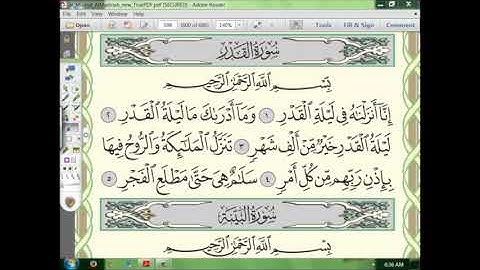 new_TruePDF.pdf [SECURED] - Adobe Reader
Open 598 140% Tools Fill & Sign Comment
سُورَةُ الْقَدْرِ
بِسْمِ اللَّهِ الرَّحْمَٰنِ الرَّحِيمِ
إِنَّا أَنزَلْنَٰهُ فِى لَيْلَةِ الْقَدْرِ ١ وَمَا أَدْرَىٰكَ مَا لَيْلَةُ الْقَدْرِ ٢
لَيْلَةُ الْقَدْرِ خَيْرٌ مِّنْ أَلْفِ شَهْرٍ ٣ تَنَزَّلُ الْمَلَٰٓئِكَةُ وَالرُّوحُ فِيهَا
بِإِذْنِ رَبِّهِم مِّن كُلِّ أَمْرٍ ٤ سَلَٰمٌ هِىَ حَتَّىٰ مَطْلَعِ الْفَجْرِ ٥
سُورَةُ الْبَيِّنَةِ
بِسْمِ اللَّهِ الرَّحْمَٰنِ الرَّحِيمِ
6:36 AM